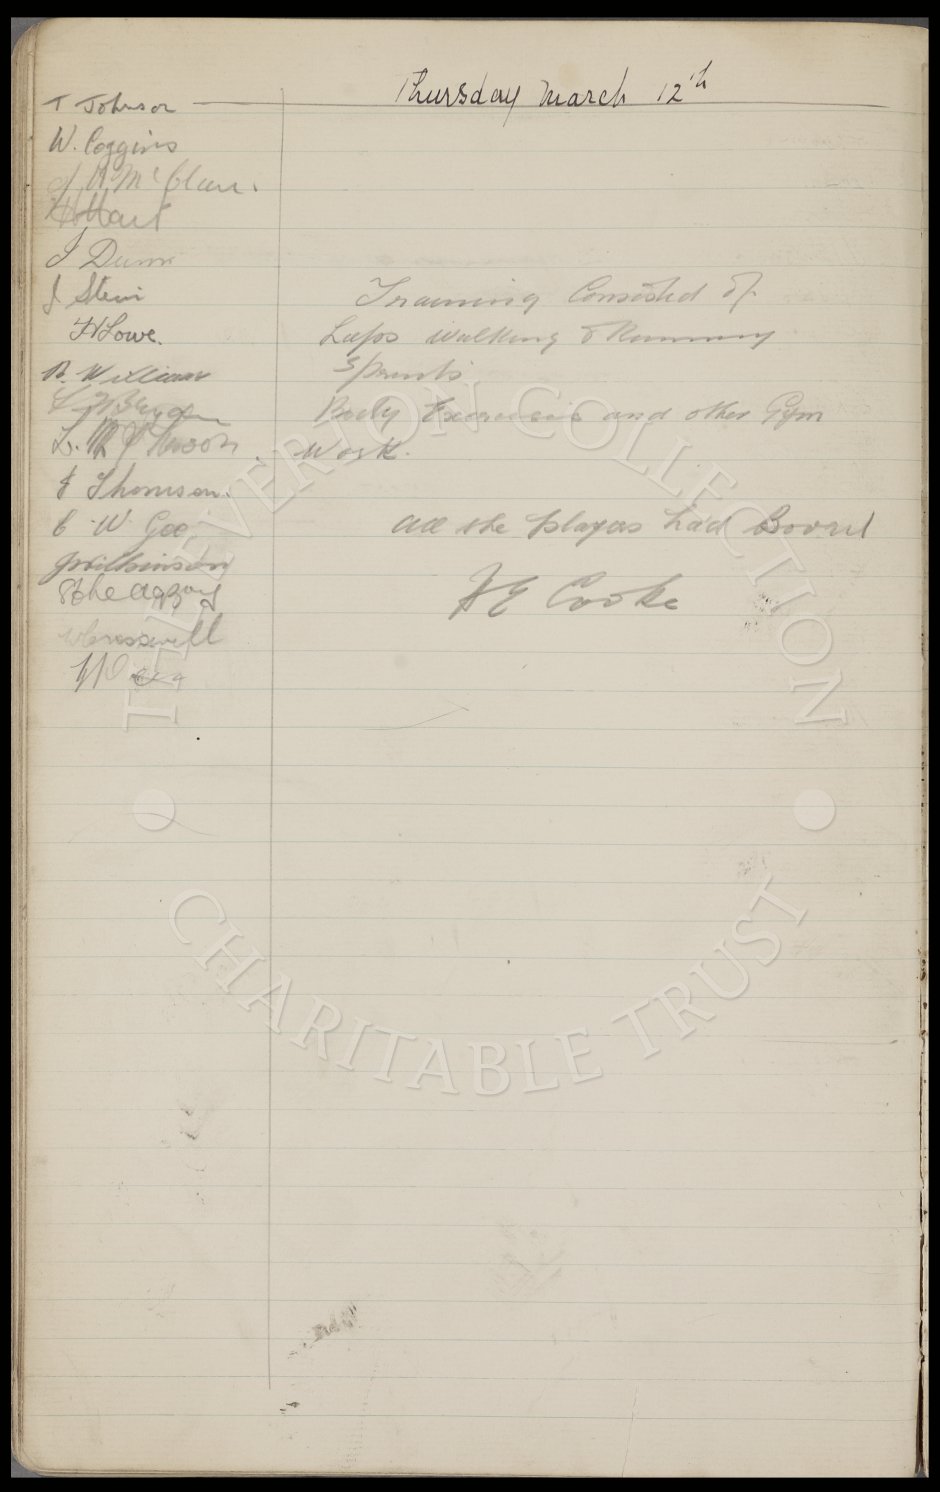 Thursday March 12th
T Johnson
W. Coggins
J. A. McClure.
H Hart
J Dunn
J Stein
H Lowe.
B. Williams
L. McPherson.
J Thomson.
C. W. Gee
J Wilkinson
W Cresswell
Training Consisted of.
Laps walking & Running
Sprints
Body Exercises and other Gym
Work.
All the players had Bovril
H E Cooke
THE EVERTON COLLECTION
CHARITABLE TRUST